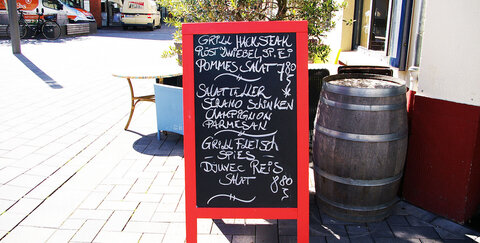 GRILL HACKSTEAK
RÖSTZWIEBEL, SP. EP
POMMES SALAT 7,80
SALATTELLER
SERANO SCHINKEN
CHAMPIGNON
PARMESAN
GRILLFLEISCH
- SPIES -
DJUVEC REIS
SALAT 8,80